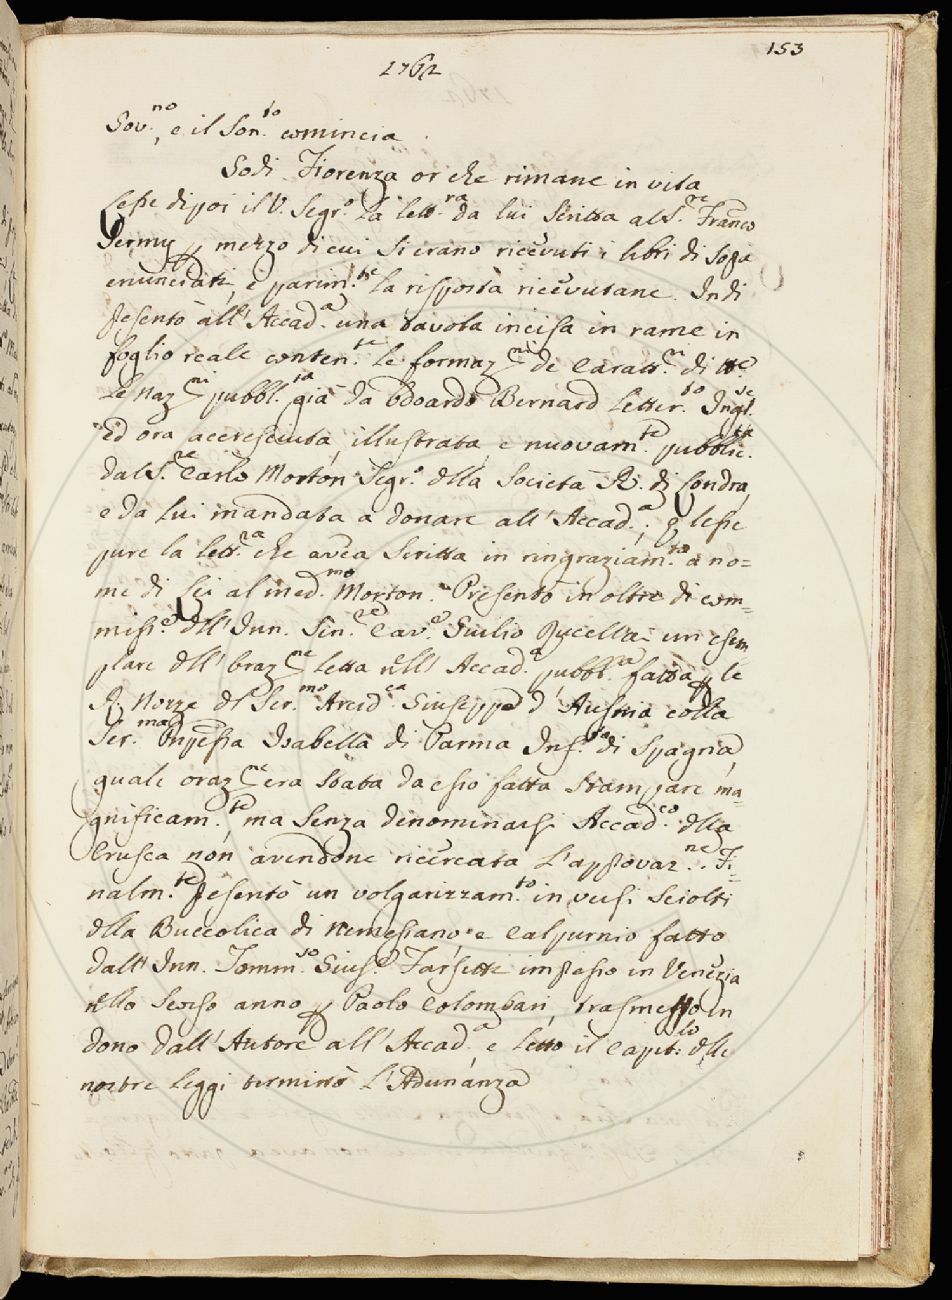 153
1762
Sov.no, e il Son.to comincia
Godi Fiorenza or che rimane in vita
Lesse di poi il V. Segr.o la lett.ra da lui scritta al S.re Franco
Dermy p mezzo di cui si erano ricevuti i libri di sopa
enunciati, e parim.te la risposta ricevutane. Indi
pesentò all' Accad.a una tavola incisa in rame in
foglio reale conten.te le formaz.ni de Caratt.ri di tte
le naz.ni pubbl.ta già da Odoardo Bernard Letter.to Ingl.se
Ed ora accresciuta, illustrata, e nuovam.te pubblic.ta
dal S.re Carlo Morton Segr.o dlla Società R. di Londra,
e da lui mandata a donare all' Accad.a; e lesse
pure la lett.ra che avea scritta in ringraziam.to a no=
me di Lei al med.mo Morton. Presentò in oltre di com=
miss.e dll' Inn. Sen.re Cav.e Giulio Rucellai un esem
plare dll' oraz.ne letta nell' Accad.a pubbl.ca fatta p le
R. Nozze dl Ser.mo Arcid.ca Giuseppe d' Austria colla
Ser.ma Pnpessa Isabella di Parma Inf.ta di Spagna,
quale oraz.ne era stata da esso fatta stampare ma=
gnificam.te, ma senza denominarsi Accad.co dlla
Crusca non avendone ricercata l'approvaz.ne. Fi=
nalm.te pesentò un volgarizzam.to in versi sciolti
dlla Buccolica di Nemesiano, e Calpurnio fatto
dall' Inn. Tomm.so Gius.e Farsetti impesso in Venezia
nllo scorso anno p Paolo Colombani, trasmesso in
dono dall' Autore all' Accad.a, e letto il Capit.lo dlle
nostre leggi terminò l'Adunanza